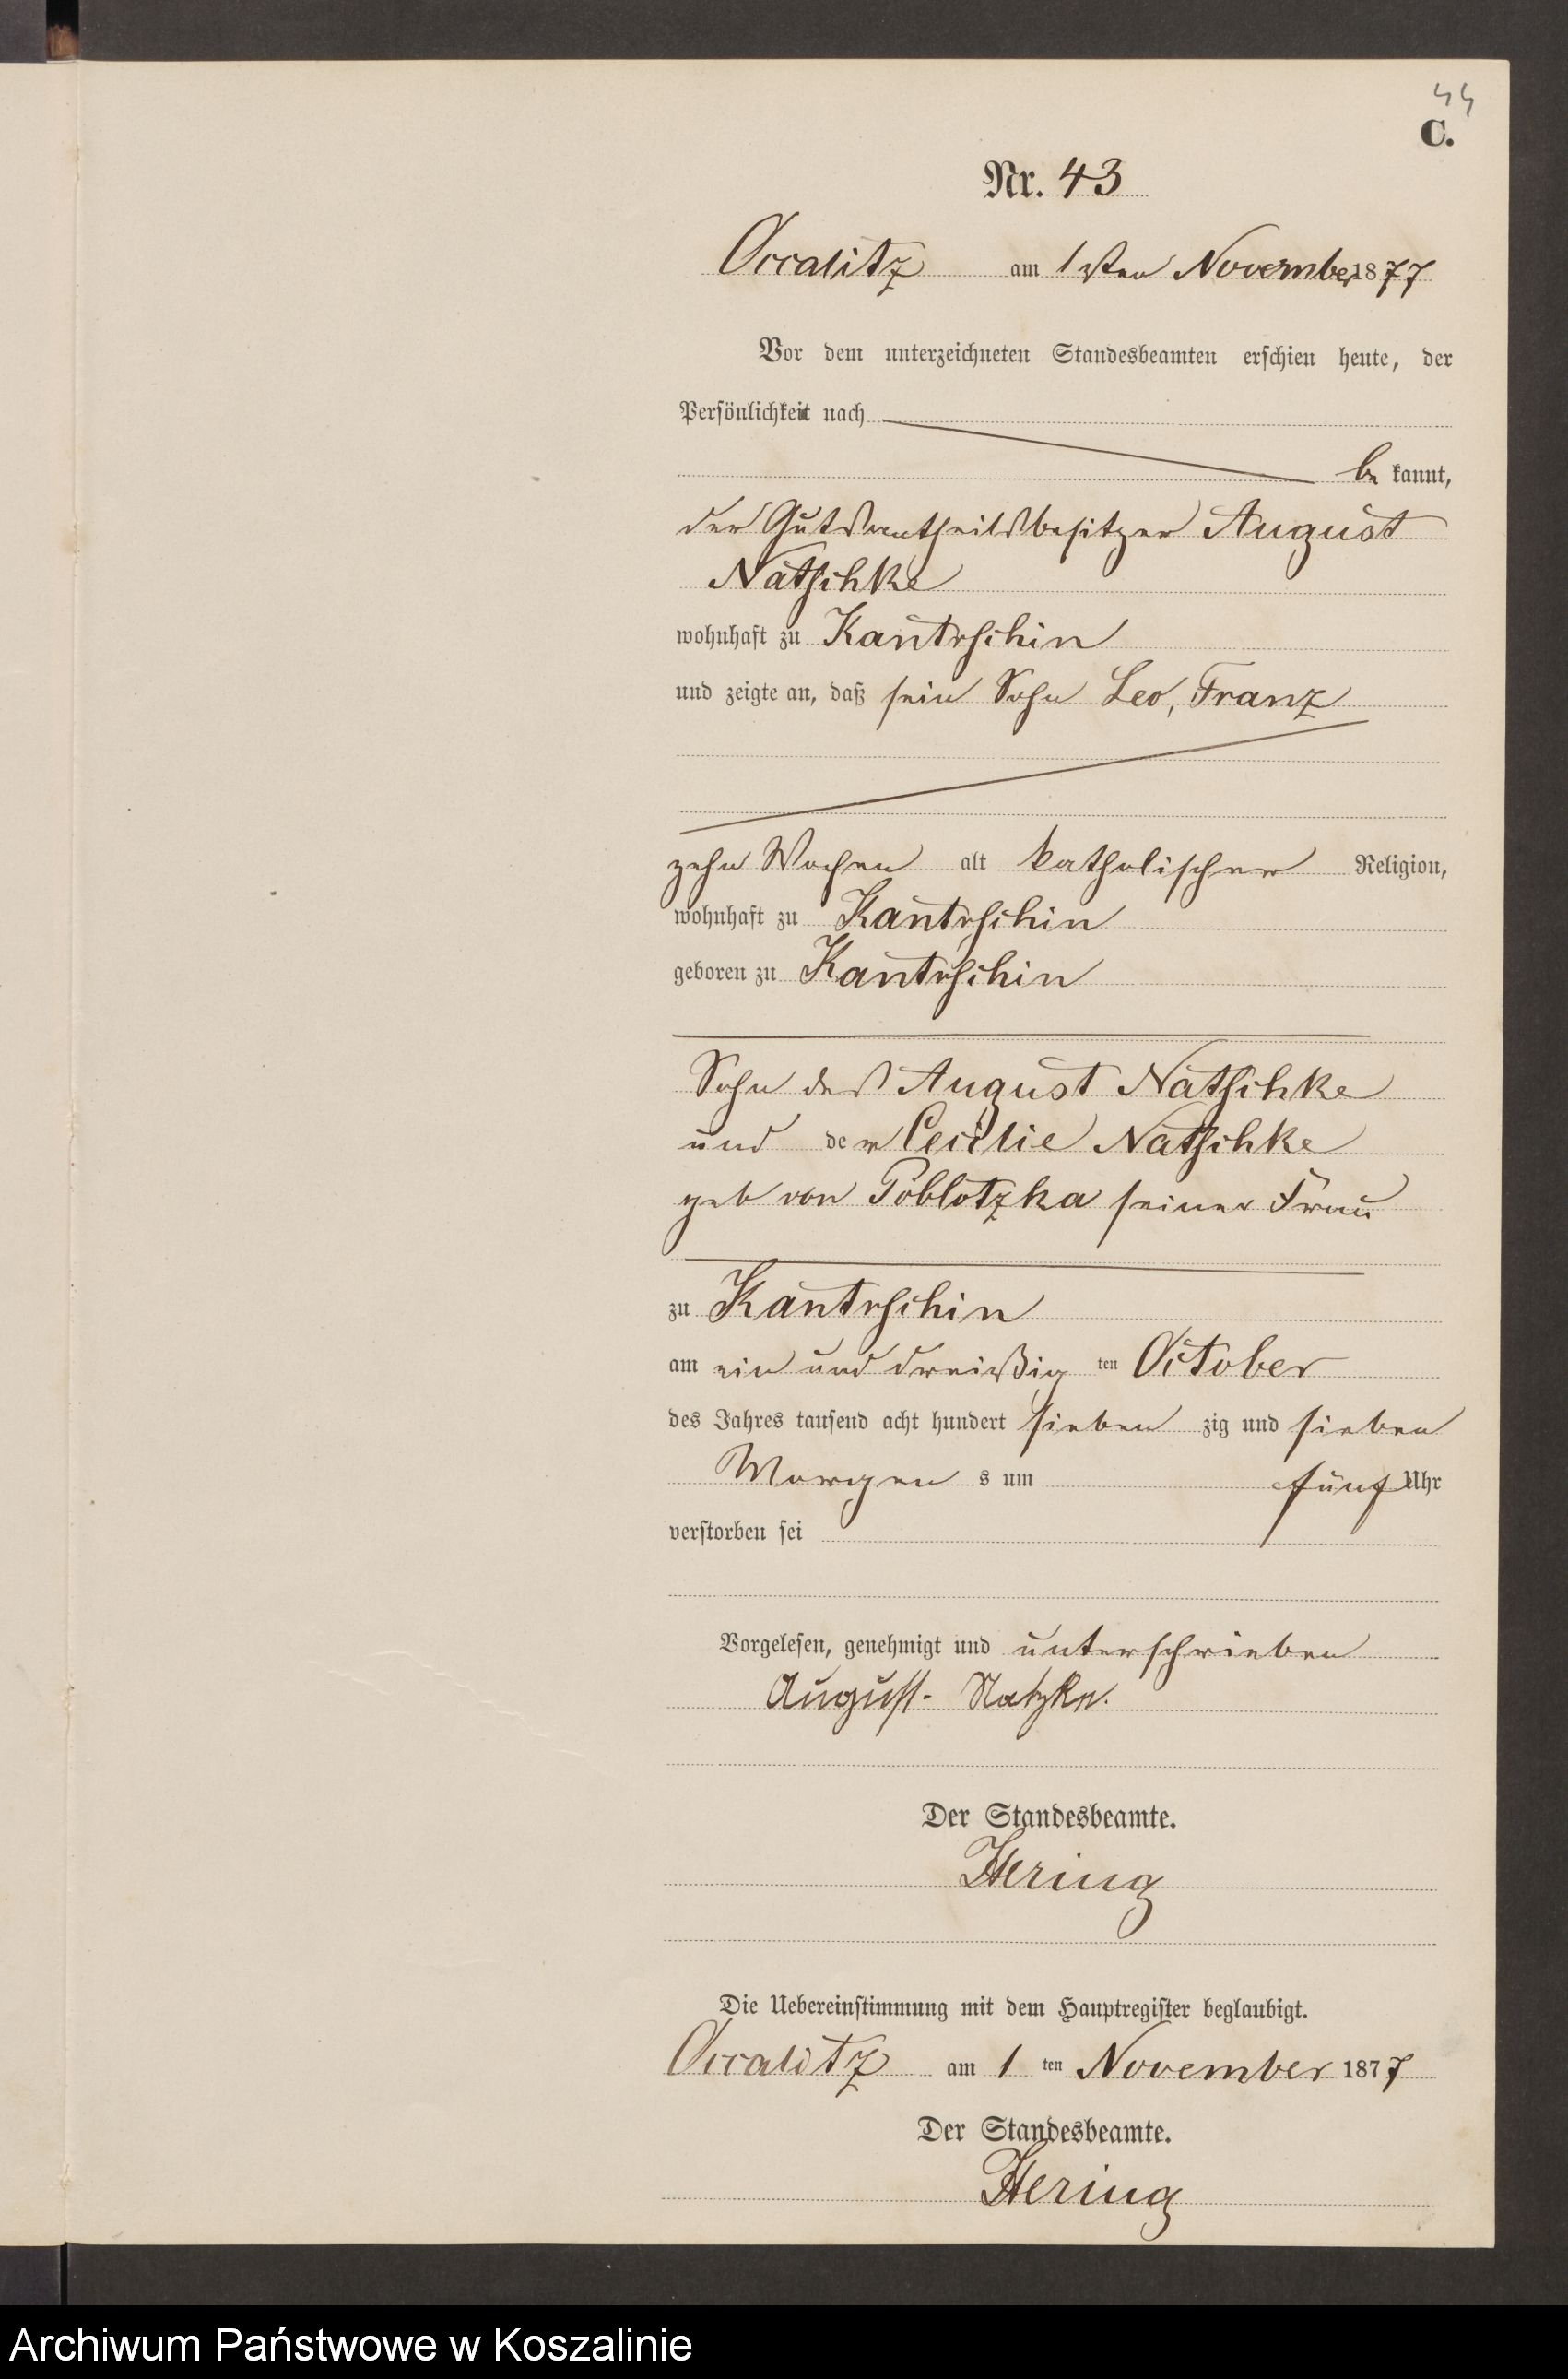 44
C.
Nr. 43
Occalitz am 1sten November 1877
Vor dem unterzeichneten Standesbeamten erschien heute, der
Persönlichkeit nach
be kannt,
der Gutsantheilsbesitzer August
Natschke
wohnhaft zu Kantrschin
und zeigte an, daß sein Sohn Leo, Franz
zehn Wochen alt katholischer Religion,
wohnhaft zu Kantrschin
geboren zu Kantrschin
Sohn des August Natschke
und der Cecilie Natschke
geb von Poblotzka seiner Frau
zu Kantrschin
am ein und dreißig ten October
des Jahres tausend acht hundert sieben zig und sieben
Morgen s um fünf Uhr
verstorben sei
Vorgelesen, genehmigt und unterschrieben
August Natzke.
Der Standesbeamte.
Hering
Die Uebereinstimmung mit dem Hauptregister beglaubigt.
Occalitz am 1 ten November 1877
Der Standesbeamte.
Hering
Archiwum Państwowe w Koszalinie